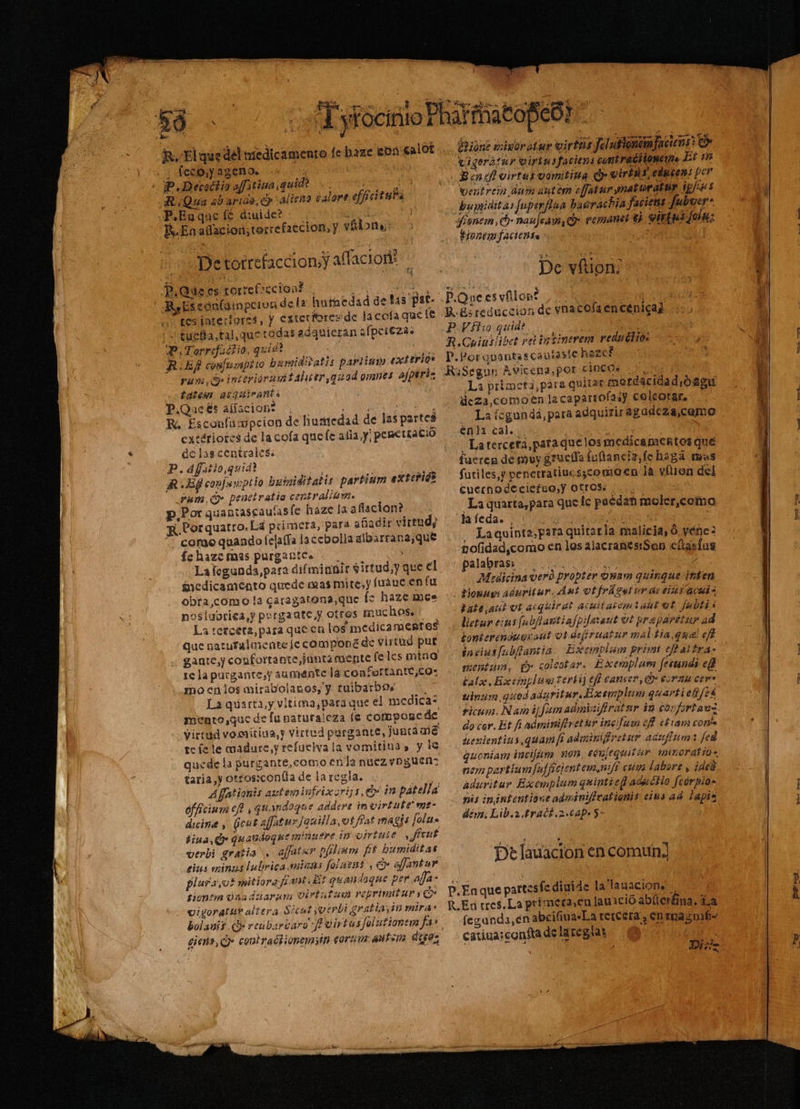 Tyrocinio Pharmacopeo,
R. El que del medicamento se haze con calor
seco, y ageno.
P. Decoctio assatiua, quid?
R. Qua ab arido, & alieno calore efficitur.
P. En que se diuide?
R. En assacion, torrefaccion, y vstion.
De torrefaccion, y assacion.
P. Que es torrefaccion?
R. Es consumpcion de la humedad de las par-
tes interiores, y exteriores de la cosa que se
tuesta, tal, que todas adquieran aspereza.
P. Torrefactio, quid?
R. Est consumptio humiditatis partium exterio-
rum, & interiorum taliter, quod omnes asperi-
tatem acquirant.
P. Que es assacion?
R. Es consumpcion de humedad de las partes
exteriores de la cosa que se assa, y penetracio
de las centrales.
P. Assatio, quid?
R. Est consumptio humiditatis partium exterio-
rum, & penetratio centralium.
P. Por quantas causas se haze la assacion?
R. Por quatro. La primera, para añadir virtud,
como quando se assa la cebolla albarrana, que
se haze mas purgante.
La segunda, para disminuir virtud, y que el
medicamento quede mas mite, y suaue en su
obra, como la çaragatona, que se haze me-
nos lubrica, y purgante, y otros muchos.
La tercera, para que en los medicamentos
que naturalmente se compone de virtud pur
gante, y confortante, juntamente se les mino
re la purgante, y aumente la confortante, co-
mo en los mirabolanos, y ruibarbo.
La quarta, y vltima, para que el medica-
mento, que de su naturaleza se compone de
virtud vomitiua, y virtud purgante, juntamē
te se le madure, y resuelva la vomitiua, y le
quede la purgante, como en la nuez vnguen-
taria, y otros: consta de la regla.
Assationis autem in frixorijs, & in patella
officium est, quandoque addere in virtute me-
dicine, sicut assatur squilla, vt fiat magis solu-
tiua, & quandoque minuere in virtute, sicut
verbi gratia, assatur psilium fit humiditas
eius minus lubrica, minus soluens, & assantur
plura, vt mitiora fiant. Et quandoque per assa-
tionem vna duarum virtutum reprimitur, &
vigoratur altera. Sicut, verbi gratia, in mira-
bolanis, & reubarbaro est virtus solutionem fa-
ciens, & contractionem, in eorum autem deco-
ctione minoratur virtus solutionem faciens, &
vigoratur virtus faciens contractionem. Et in
Ben est virtus vomitiua, & virtus, educens per
ventrem, dum autem assatur maturatur ipsius
humiditas superflua
faciens subver-
sionem, & nauseam, & remanet ei virtus solu-
tionem faciens.
De vstion.
P. Que es vstion?
R. Es reduccion de vna cosa en ceniça.
P. Vstio quid?
R. Cuiuslibet rei in cinerem reductio.
P. Por quantas causas se haze?
R. Segun Avicena, por cinco.
La primera, para quitar mordacidad, ò agu
deza, como en la caparrosa, y colcotar.
La segunda, para adquirir agudeza, como
en la cal.
La tercera, para que los medicamentos que
fueren de muy gruessa sustancia, se hagā mas
sutiles, y penetratiuos; como en la vstion del
cuerno de cieruo, y otros.
La quarta, para que se puedan moler, como
la seda.
La quinta, para quitarla malicia, ò vene-
nosidad, como en los alacranes: Son estas sus
palabras:
Medicina verò propter vnam quinque inten
tionum aduritur. Aut vt frāgatur ab eius acui-
tate, aut vt acquirat acuitatem: aut vt subti-
lietur eius substantia spissa: aut vt praparetur ad
conterendum: aut vt destruatur malitia, quæ est
in eius substantia. Exemplum primi est atra-
mentum, & colcotar. Exemplum secundi est
calx. Exemplum tertij est cancer, & cornu cer-
uinum, quod aduritur. Exemplum quarti est se-
ricum. Nam ipsum administratur in confortan-
do cor. Et si administretur incisum est etiam con-
uenientius, quam si administretur adustum: sed
quoniam incisum non consequitur minoratio-
nem partium sufficientem, nisi cum labore, ideo
aduritur. Exemplum quinti est adustio scorpio-
nis in intentione administrationis eius ad lapi-
dem. Lib. 2. tract. 2. cap. 5.
De lauacion en comun.
P. En que partes se diuide la lauacion.
R. En tres. La primera, en lauació abstersina. La
segunda, en abcisiua. La tercera, en magnifi-
catiua: consta de la reglas